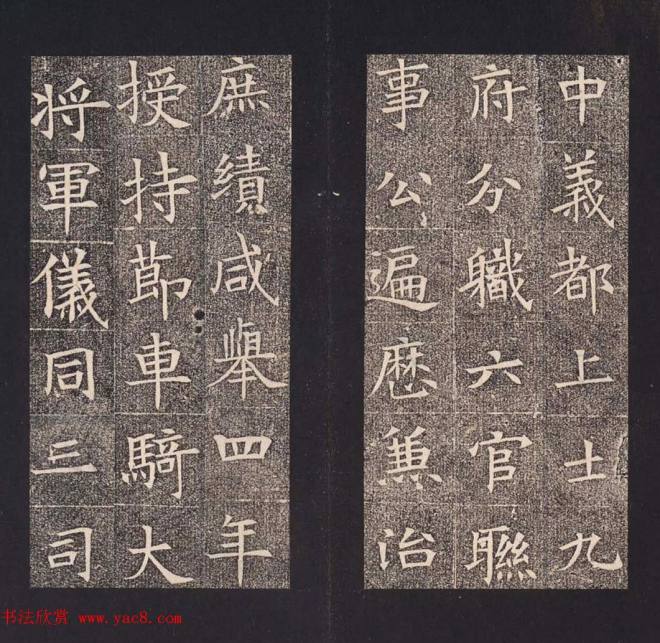 中義都上士九
府分職六官聯
事公遍歷兼治
庶績咸舉四年
授持節車騎大
将軍儀同三司
书法欣赏 www.yac8.com